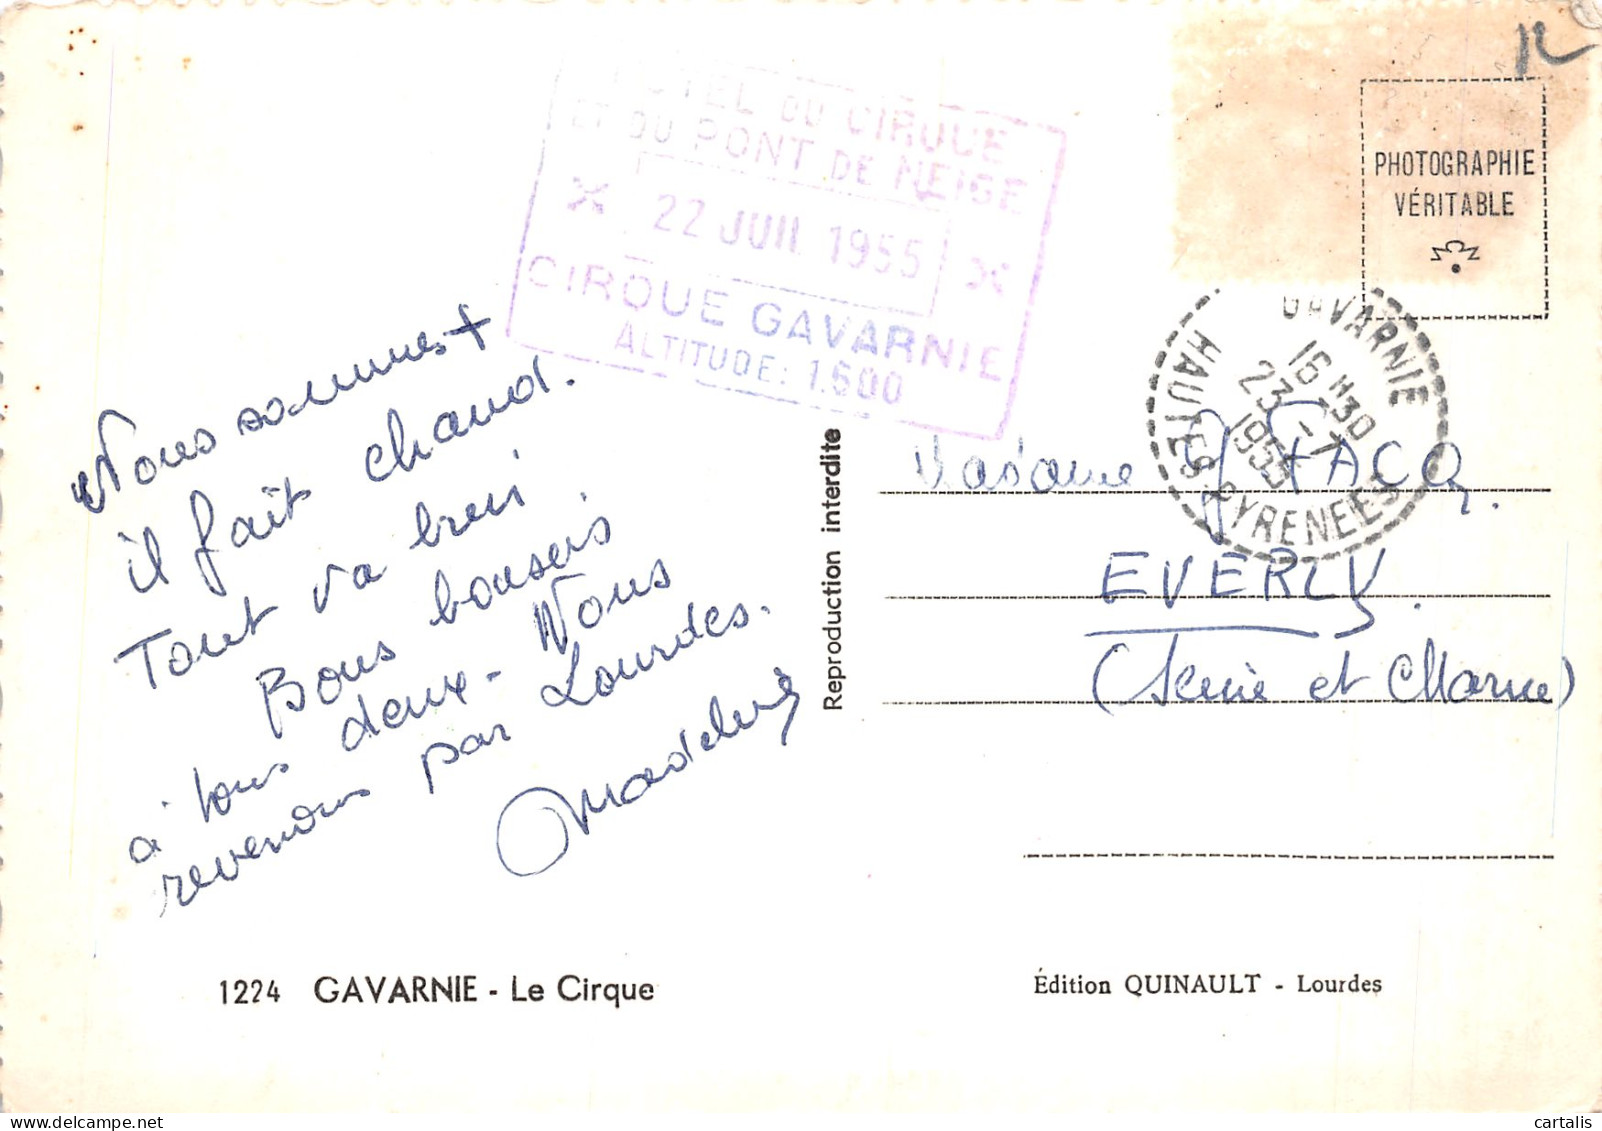 12
PHOTOGRAPHIE
VÉRITABLE
HOTEL DU CIRQUE
ET DU PONT DE NEIGE
22 JUIL 1955
CIRQUE GAVARNIE
ALTITUDE: 1.600
GAVARNIE
16 H 30
23 - 7
1955
HAUTES-PYRENEES
Nous sommes +
il fait chaud.
Tout va bien
Bons baisers
à tous deux - Nous
revenons par Lourdes.
Madeleine
Reproduction interdite
Madame FACQ.
EVERLY.
(Seine et Marne)
1224 GAVARNIE - Le Cirque
Édition QUINAULT - Lourdes
cartalis